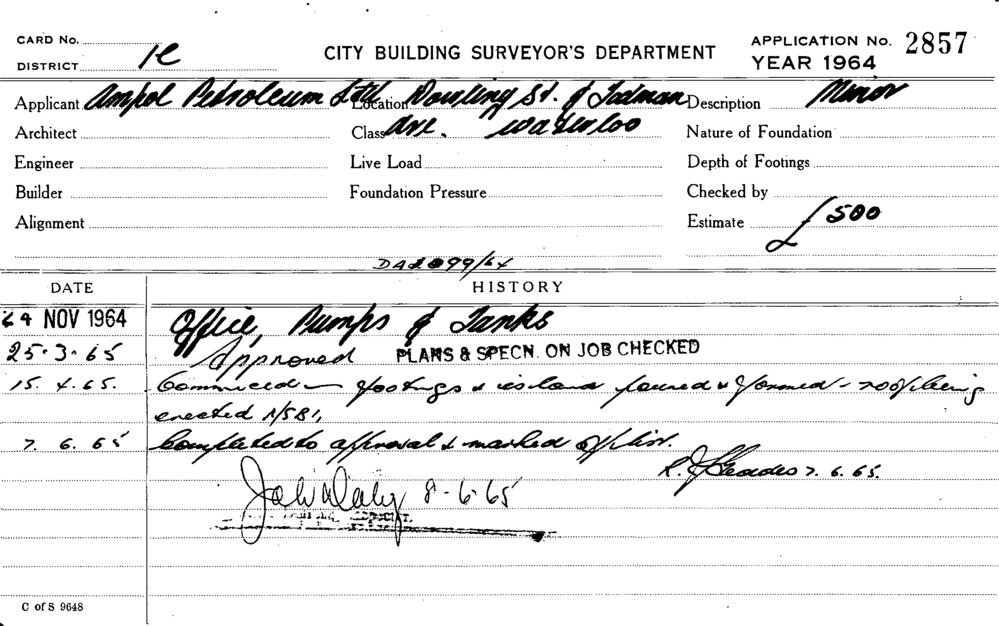 CARD No.
DISTRICT
CITY BUILDING SURVEYOR'S DEPARTMENT
APPLICATION No. 2857
YEAR 1964
Applicant Ampol Petroleum Ltd Location Dowling St. & Todman Description Minor
Architect Class Ave. Waterloo Nature of Foundation
Engineer Live Load Depth of Footings
Builder Foundation Pressure Checked by
Alignment Estimate £500
DA 2099/64
DATE HISTORY
NOV 1964 Office, Pumps & Tanks
25.3.65 Approved PLANS & SPECN. ON JOB CHECKED
15.4.65. Commenced - footings & island poured & formed - roof being
erected
7.6.65 Completed to approval & marked off list.
7.6.65.
John Daly 8-6-65
C of S 9648